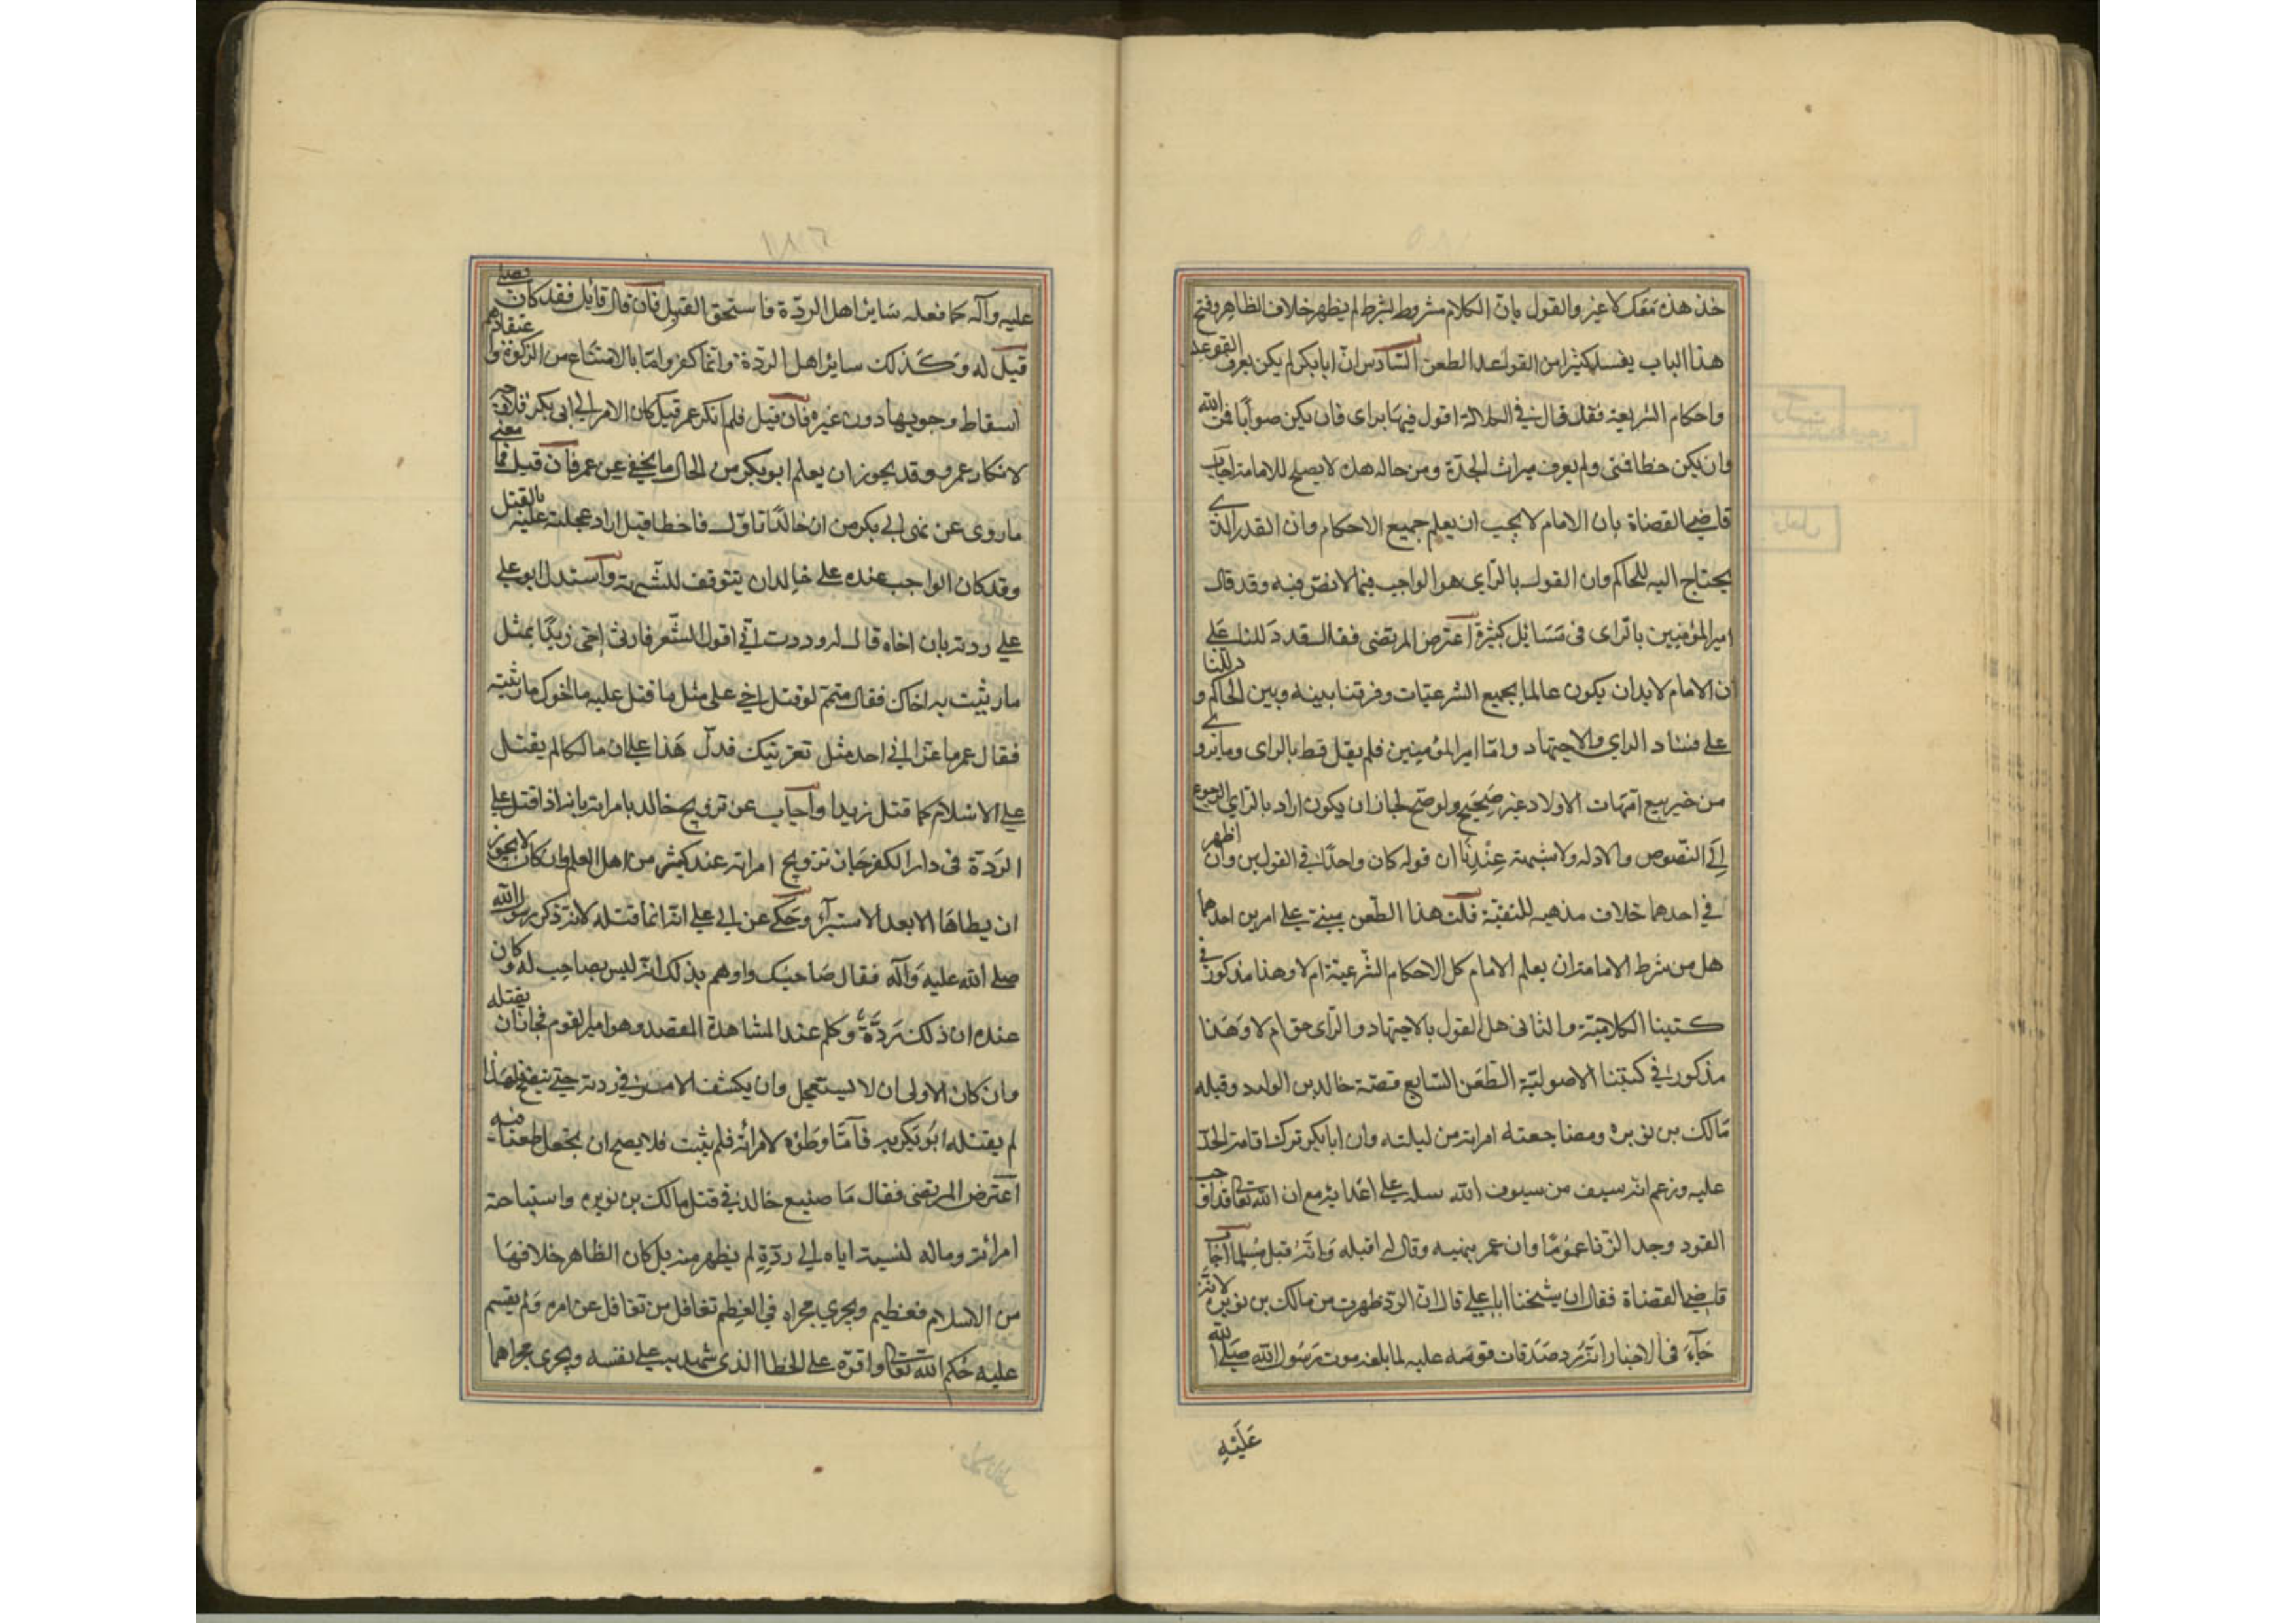 خذ هذه معك لا غير والقول بان الكلام مشروط بشرط لم يظهر خلاف الظاهر وفتح
هذا الباب يفسد كثيرا من القواعد الطعن السادس ان ابا بكر لم يكن يعرف الفقه
واحكام الشريعة فقد قال في الكلالة اقول فيها براى فان يكن صوابا فمن الله
وان يكن خطا فمنى ولم يعرف ميراث الجدة ومن حاله هذه لا يصلح للامامة اجاب
قاضى القضاة بان الامام لا يجب ان يعلم جميع الاحكام وان القدر الذى
يحتاج اليه للحاكم وان القول بالراى هو الواجب فيما لا نص فيه وقد قال
امير المؤمنين بالراى فى مسائل كثيرة اعترض المرتضى فقال قد دللنا على
ان الامام لا بد ان يكون عالما بجميع الشرعيات وفرقنا بينه وبين الحاكم ودللنا
على فساد الراى والاجتهاد واما امير المؤمنين فلم يقل قط بالراى وما يروى
من خبر بيع امهات الاولاد غير صحيح ولو صح لجاز ان يكون اراد بالراى الرجوع
الى النصوص والادلة ولا شبهة عندنا ان قوله كان واحدا فى القولين وان اظهر
فى احدهما خلاف مذهبه للتقية قلت هذا الطعن مبنى على امرين احدهما
هل من شرط الامامة ان يعلم الامام كل الاحكام الشرعية ام لا وهذا مذكور فى
كتبنا الكلامية والثانى هل القول بالاجتهاد والراى حق ام لا وهذا
مذكور فى كتبنا الاصولية الطعن السابع قصة خالد بن الوليد وقتله
مالك بن نويره ومضاجعته امراته من ليلته وان ابا بكر ترك اقامة الحد
عليه وزعم انه سيف من سيوف الله سله على اعدائه مع ان الله تعالى قد اوجب
القود وحد الزنا عموما وان عمر نبهه وقال له اقتله فانه قتل مسلما اجاب
قاضى القضاة فقال ان شيخنا ابا على قال ان الردة ظهرت من مالك بن نويره لانه
جاء فى الاخبار انه رد صدقات قومه عليهم لما بلغه موت رسول الله صلى الله
عليه
عليه وآله كما فعله سائر اهل الردة فاستحق القتل فان قال قائل فقد كان يصلى
قيل له وكذلك سائر اهل الردة وانما كفروا بالامتناع من الزكوة واعتقادهم
اسقاط وجوبها دون غيره فان قيل فلم انكر عمر قيل كان الامر الى ابى بكر فلا وجه
لانكار عمر وقد يجوز ان يعلم ابو بكر من الحال ما يخفى عن عمر فان قيل فما معنى
ما روى عن ابى بكر من ان خالدا تاول فاخطا قيل اراد عجلته عليه بالقتل
وقد كان الواجب عنده على خالد ان يتوقف للشبهة واستدل ابو على
على ردته بان اخاه قال له وددت انى اقول الشعر فارثى اخى زيدا بمثل
ما رثيت به اخاك فقال متمم لو قتل اخى على مثل ما قتل عليه اخوك ما رثيته
فقال عمر ما عزانى احد مثل تعزيتك فدل هذا على ان مالكا لم يقتل
على الاسلام كما قتل زيد واجاب عن تزويج خالد بامراته بانه اذا قتل على
الردة فى دار الكفر جاز تزويج امراته عند كثير من اهل العلم وان كان لا يجوز
ان يطاها الا بعد الاستبراء وحكى عن ابى على انه انما قتله لانه ذكر رسول الله
صلى الله عليه وآله فقال صاحبك واوهم بذلك انه ليس بصاحب له وكان
عنده ان ذلك ردة وعلم عند المشاهدة المقصد وهو امير القوم فجاز ان يقتله
وان كان الاولى ان لا يستعجل وان يكشف الامر فى ردته حتى يتضح فلهذا
لم يقتله ابو بكر به فاما وطؤه لامراته فلم يثبت فلا يصح ان يجعل طعنا فيه
اعترض المرتضى فقال ما صنيع خالد فى قتل مالك بن نويره واستباحة
امراته وماله لنسبة اياه الى ردة لم يظهر منه بل كان الظاهر خلافها
من الاسلام فعظيم ويجرى مجراه فى العظم تغافل من تغافل عن امره ولم يقسم
عليه حكم الله تعالى واقره على الخطا الذى شهد به على نفسه ويجرى مجراهما